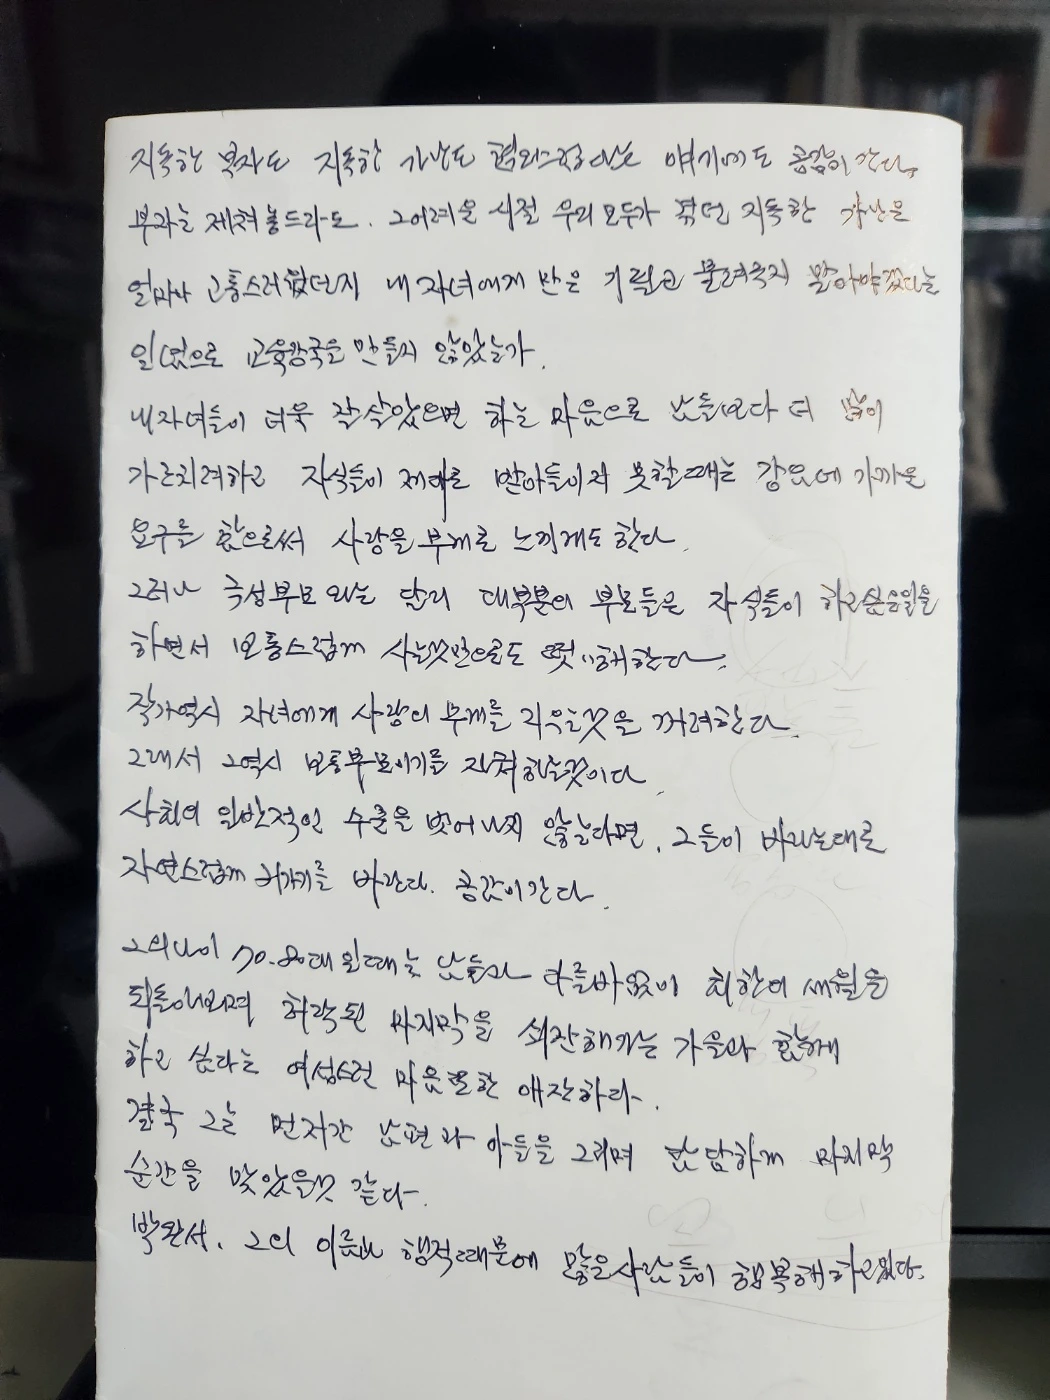 지독한 부자도 지독한 가난도 혐오스럽다는 얘기에도 공감이 간다.
부자는 제쳐놓드라도. 그어려운 시절 우리 모두가 겪던 지독한 가난은
얼마나 고통스러웠던지 내 자녀에게 만은 기필코 물려주지 말아야겠다는
일념으로 교육강국을 만들지 않았는가.
내자녀들이 더욱 잘 살았으면 하는 마음으로 남들보다 더 많이
가르치려하고 자식들이 제대로 받아들이지 못할때는 강요에 가까운
요구를 함으로써 사랑을 무게로 느끼게도 한다.
그러나 극성부모 와는 달리 대부분의 부모들은 자식들이 하고싶은일을
하면서 보통스럽게 사는것만으로도 떳떳해한다.
작가역시 자녀에게 사랑의 무게를 지우는것을 꺼려한다.
그래서 그역시 보통부모이기를 자처하는것이다.
사회의 일반적인 수준을 벗어나지 않는다면, 그들이 바라는대로
자연스럽게 커가기를 바란다. 공감이간다.
그의나이 70-80대 일때는 남들과 다름바없이 회한의 세월을
되돌아보며 허락된 마지막을 쇠잔해가는 가을과 함께
하고 싶다는 여성스런 마음 또한 애잔하다.
결국 그는 먼저간 남편과 아들을 그리며 담담하게 마지막
순간을 맞았을것 같다.
박완서. 그의 이름과 행적때문에 많은사람들이 행복해하고있다.